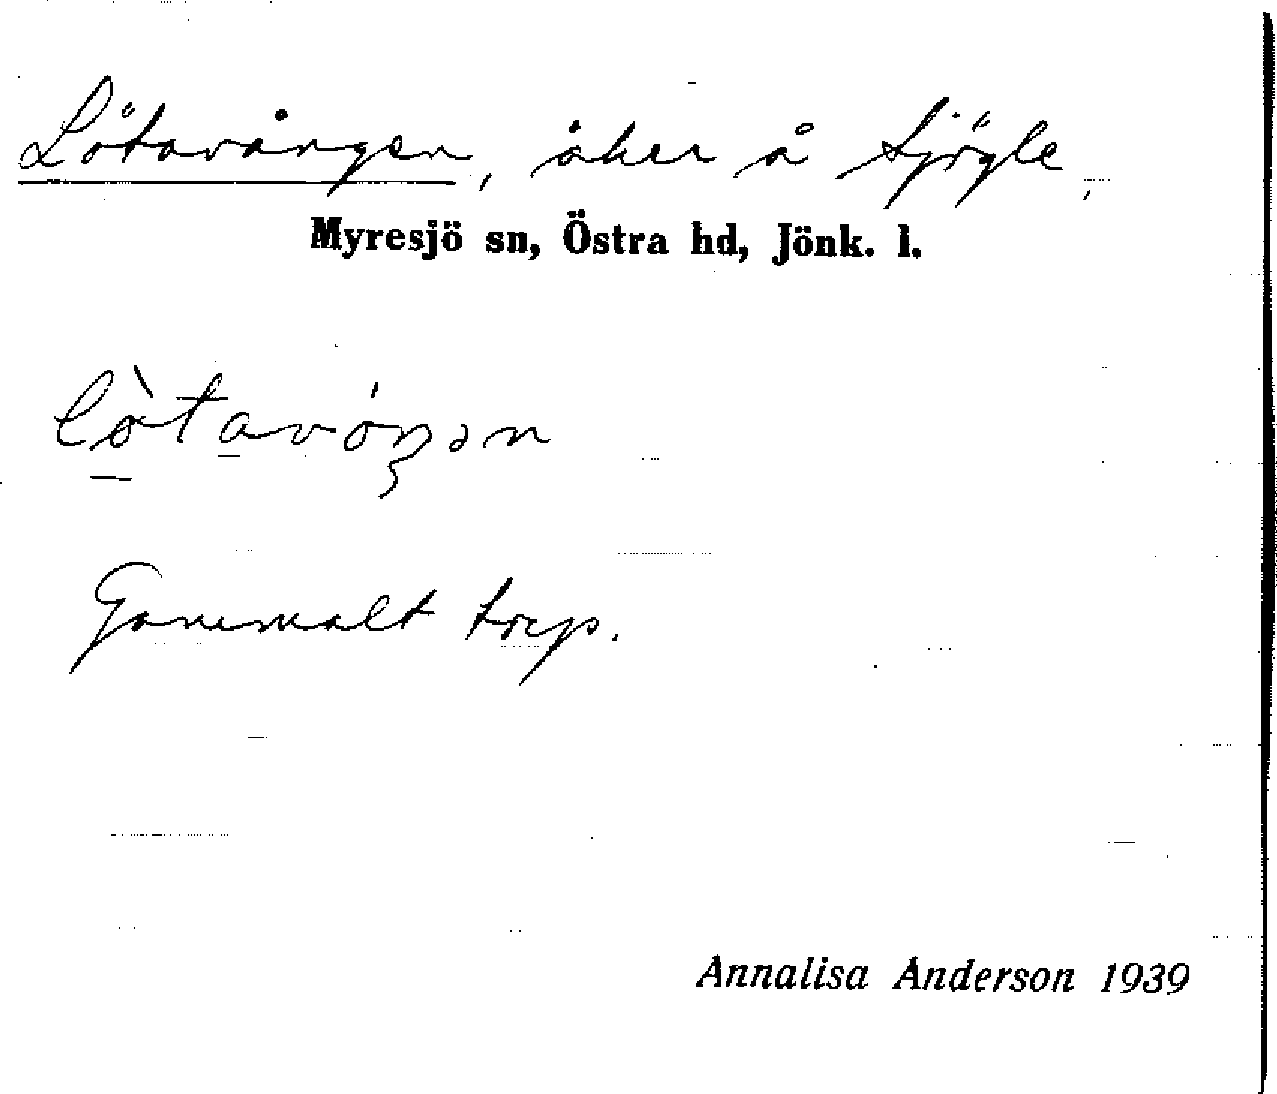 Lötavången, åker å Sjögle,
Myresjö sn, Östra hd, Jönk. l.
Gammalt torp.
Annalisa Anderson 1939